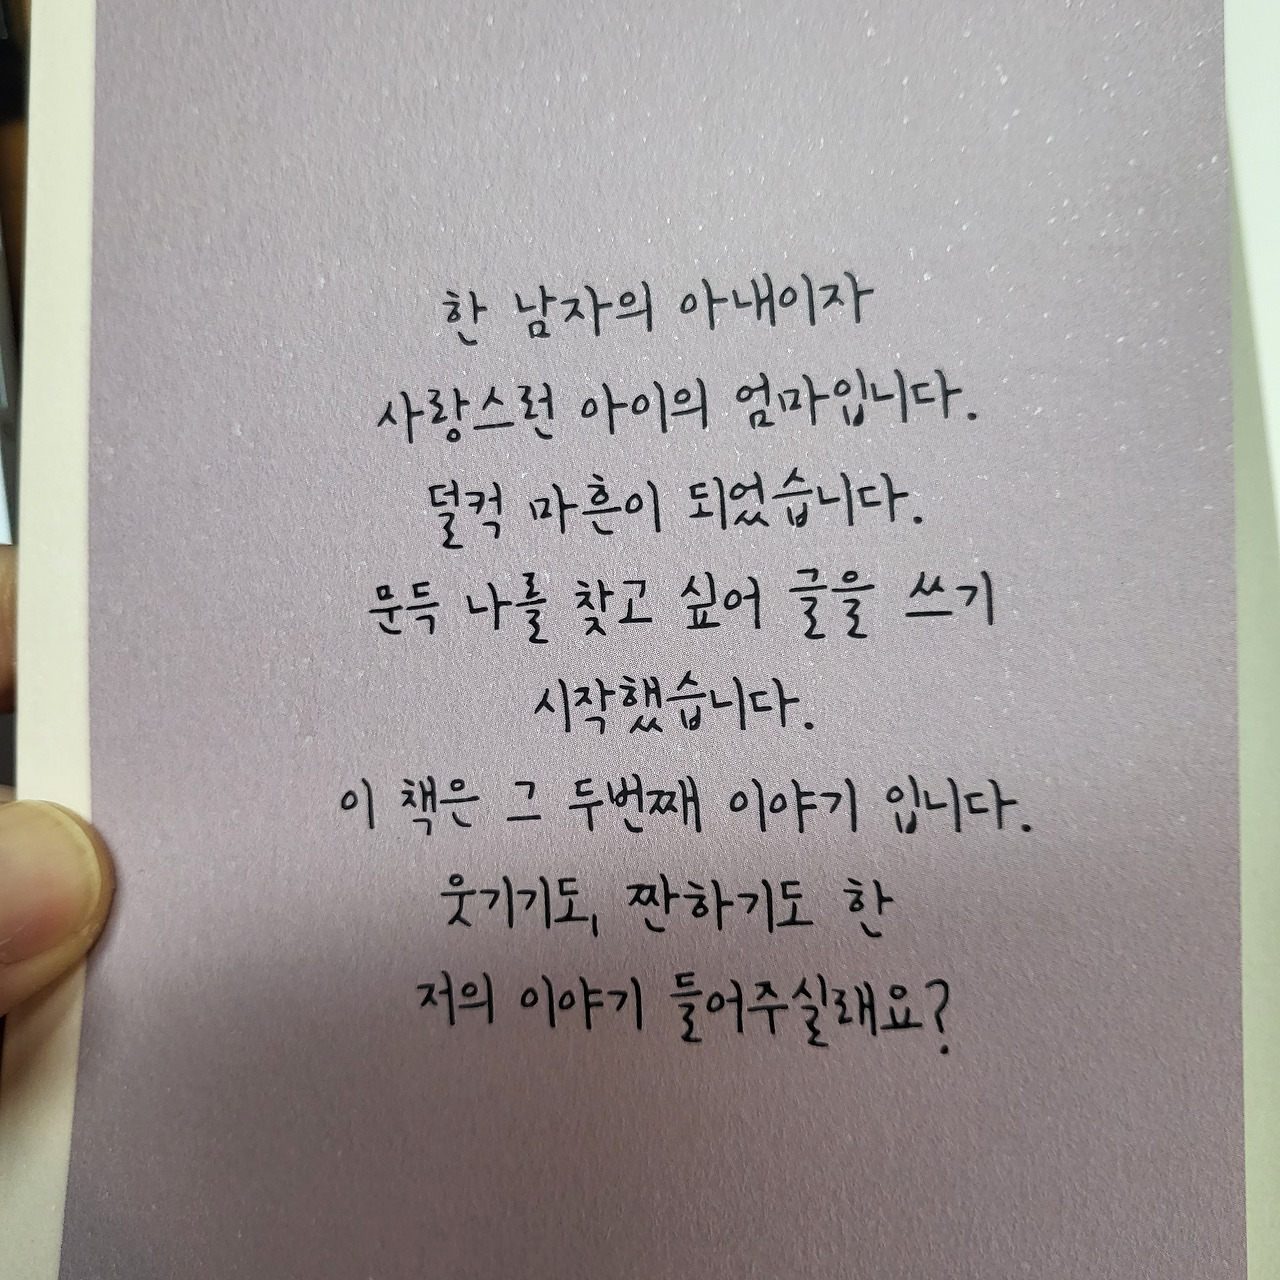 한 남자의 아내이자
사랑스런 아이의 엄마입니다.
덜컥 마흔이 되었습니다.
문득 나를 찾고 싶어 글을 쓰기
시작했습니다.
이 책은 그 두번째 이야기 입니다.
웃기기도, 짠하기도 한
저의 이야기 들어주실래요?